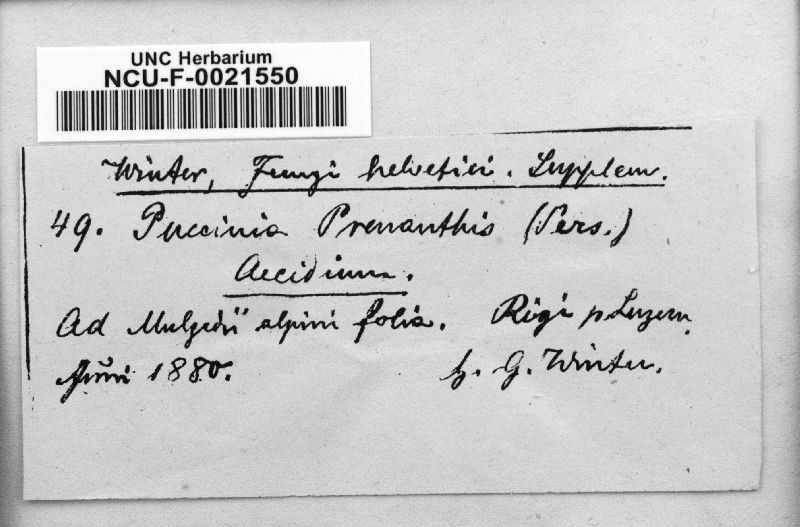 UNC Herbarium
NCU-F-0021550
Winter, Fungi helvetici. Supplem.
49. Puccinia Prenanthis (Pers.)
Aecidium.
Ad Mulgedii alpini folia. Rigi p. Luzern.
Juni 1880. G. Winter.